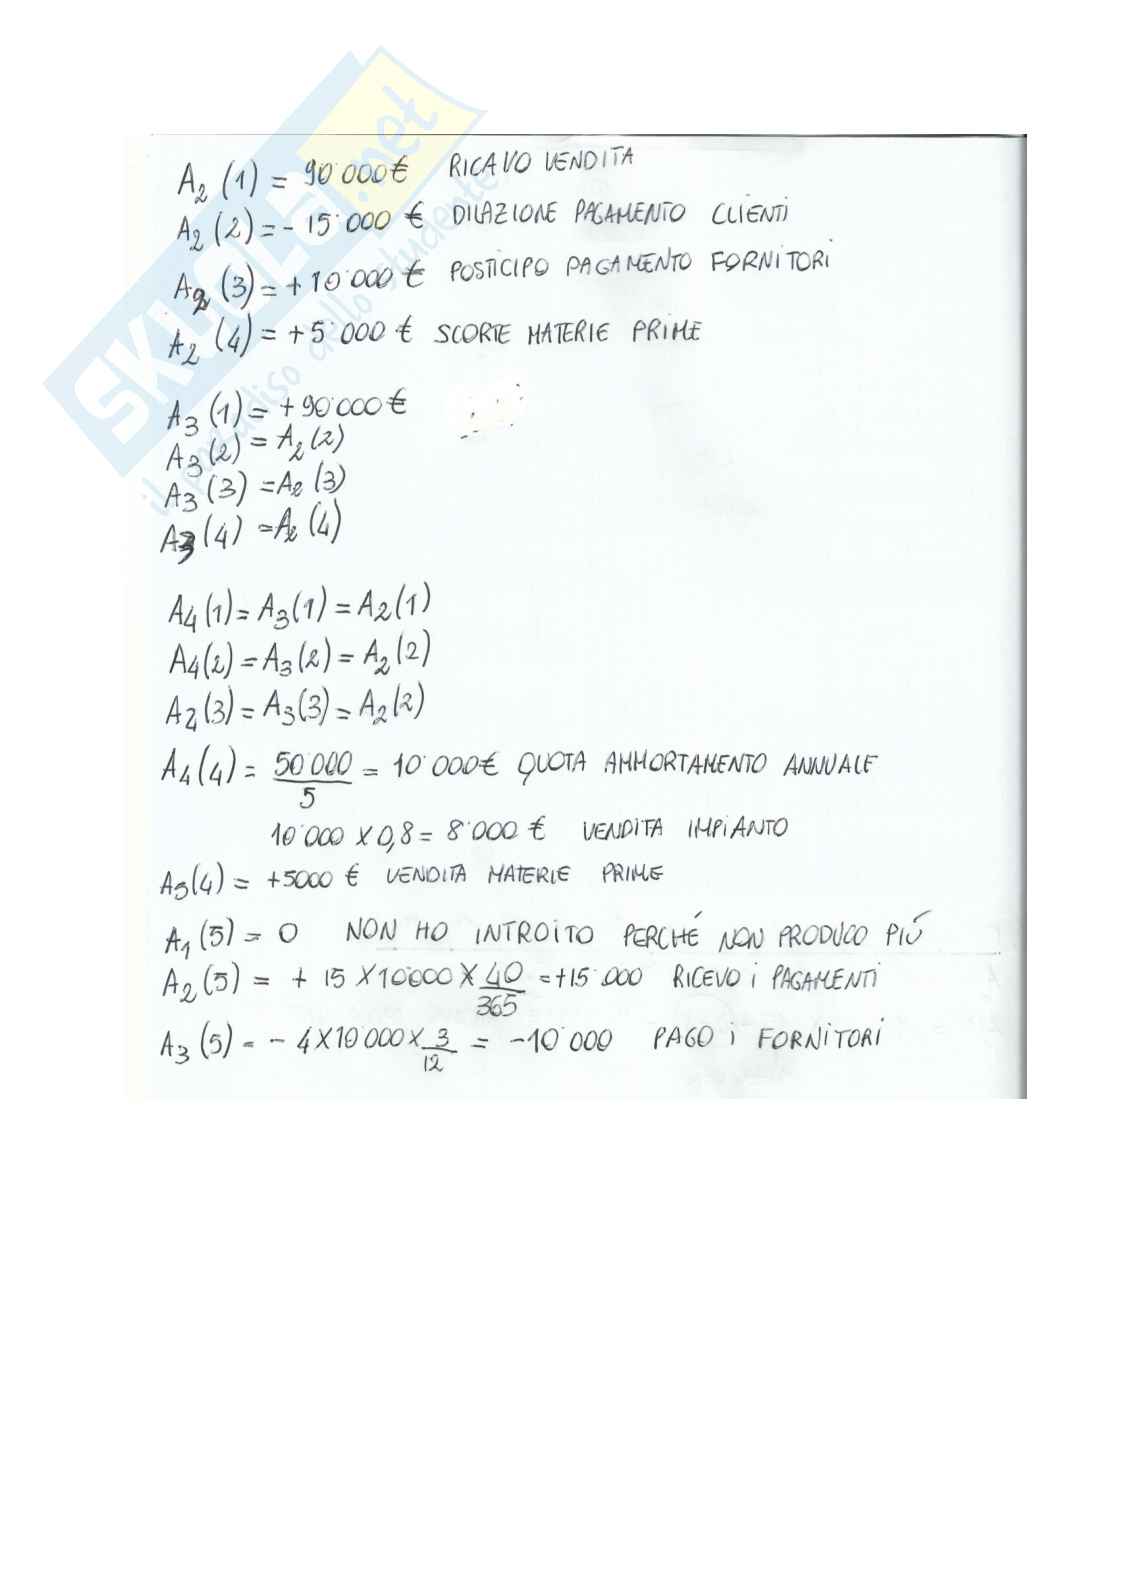 SKUOLA.net
il paradiso dello studente
A2 (1) = 90'000€ RICAVO VENDITA
A2 (2) = - 15'000 € DILAZIONE PAGAMENTO CLIENTI
A2 (3) = + 10'000 € POSTICIPO PAGAMENTO FORNITORI
A2 (4) = + 5'000 € SCORTE MATERIE PRIME
A3 (1) = + 90'000€
A3 (2) = A2 (2)
A3 (3) = A2 (3)
A3 (4) = A2 (4)
A4 (1) = A3 (1) = A2 (1)
A4 (2) = A3 (2) = A2 (2)
A4 (3) = A3 (3) = A2 (2)
A4 (4) = 50'000/5 = 10'000€ QUOTA AMMORTAMENTO ANNUALE
10'000 X 0,8 = 8'000 € VENDITA IMPIANTO
A5 (4) = +5000 € VENDITA MATERIE PRIME
A1 (5) = 0 NON HO INTROITO PERCHÉ NON PRODUCO PIÚ
A2 (5) = + 15 X 10000 X 40/365 = +15'000 RICEVO i PAGAMENTI
A3 (5) = - 4 X 10'000 X 3/12 = -10'000 PAGO i FORNITORI